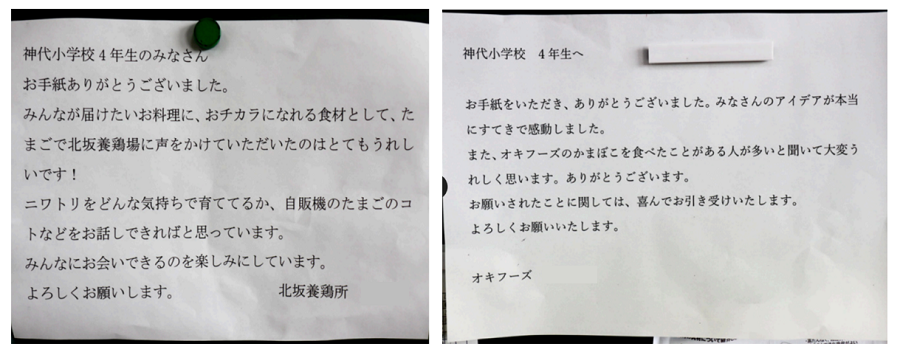 神代小学校4年生のみなさん
お手紙ありがとうございました。
みんなが届けたいお料理に、おチカラになれる食材として、た
まごで北坂養鶏場に声をかけていただいたのはとてもうれし
いです！
ニワトリをどんな気持ちで育ててるか、自販機のたまごのコ
トなどをお話しできればと思っています。
みんなにお会いできるのを楽しみにしています。
よろしくお願いします。 北坂養鶏所
神代小学校 4年生へ
お手紙をいただき、ありがとうございました。みなさんのアイデアが本当
にすてきで感動しました。
また、オキフーズのかまぼこを食べたことがある人が多いと聞いて大変う
れしく思います。ありがとうございます。
お願いされたことに関しては、喜んでお引き受けいたします。
よろしくお願いいたします。
オキフーズ